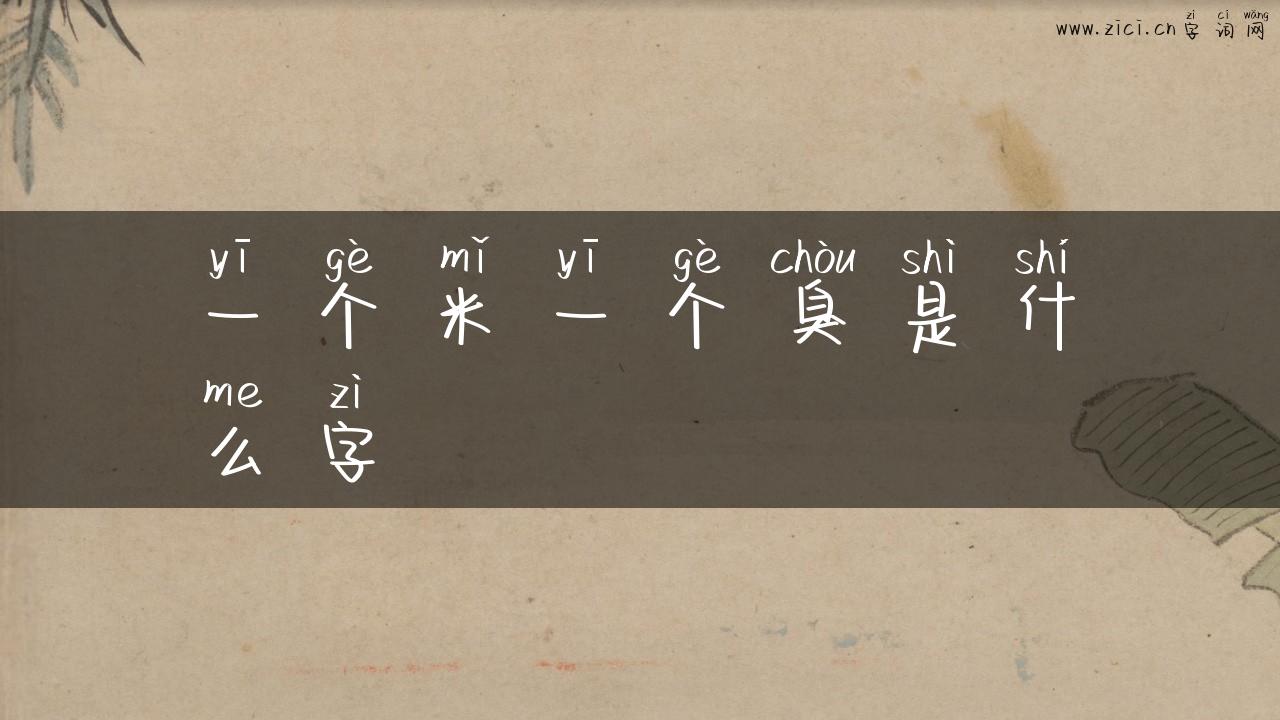 www.zici.cn
zì cí wǎng
字词网
yī gè mǐ yī gè chòu shì shí
一个米一个臭是什
me zì
么字